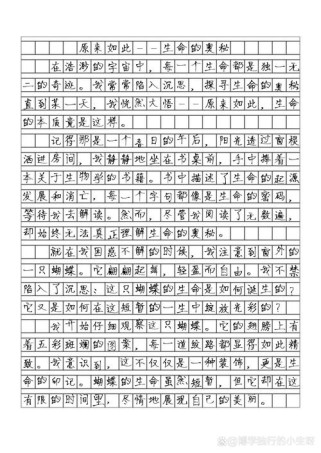 原来如此--生命的奥秘
在浩渺的宇宙中，每一个生命都是独一无
二的奇迹。我常常陷入沉思，探寻生命的奥秘
直到某一天，我恍然大悟--原来如此，生命
的本质竟是这样。
记得那是一个春日的午后，阳光透过窗棂
洒进房间，我静静地坐在书桌前，手中捧着一
本关于生物学的书籍。书中描述了生命的起源
发展和消亡，每一个字句都像是生命的密码，
等待我去解读。然而，尽管我阅读了无数遍，
却始终无法真正理解生命的奥秘。
就在我困惑不解的时候，我注意到窗外的
一只蝴蝶。它翩翩起舞，轻盈而自由。我不禁
陷入了沉思：这只蝴蝶的生命是如何诞生的？
它又是如何在这短暂的一生中绽放光彩的？
我开始仔细观察这只蝴蝶。它的翅膀上有
着五彩斑斓的图案，每一道纹路都显得如此精
致。我意识到，这不仅仅是一种装饰，更是生
命的印记。蝴蝶的生命虽然短暂，但它却在这
有限的时间里，尽情地展现自己的美丽。
@博学独行的小空郡